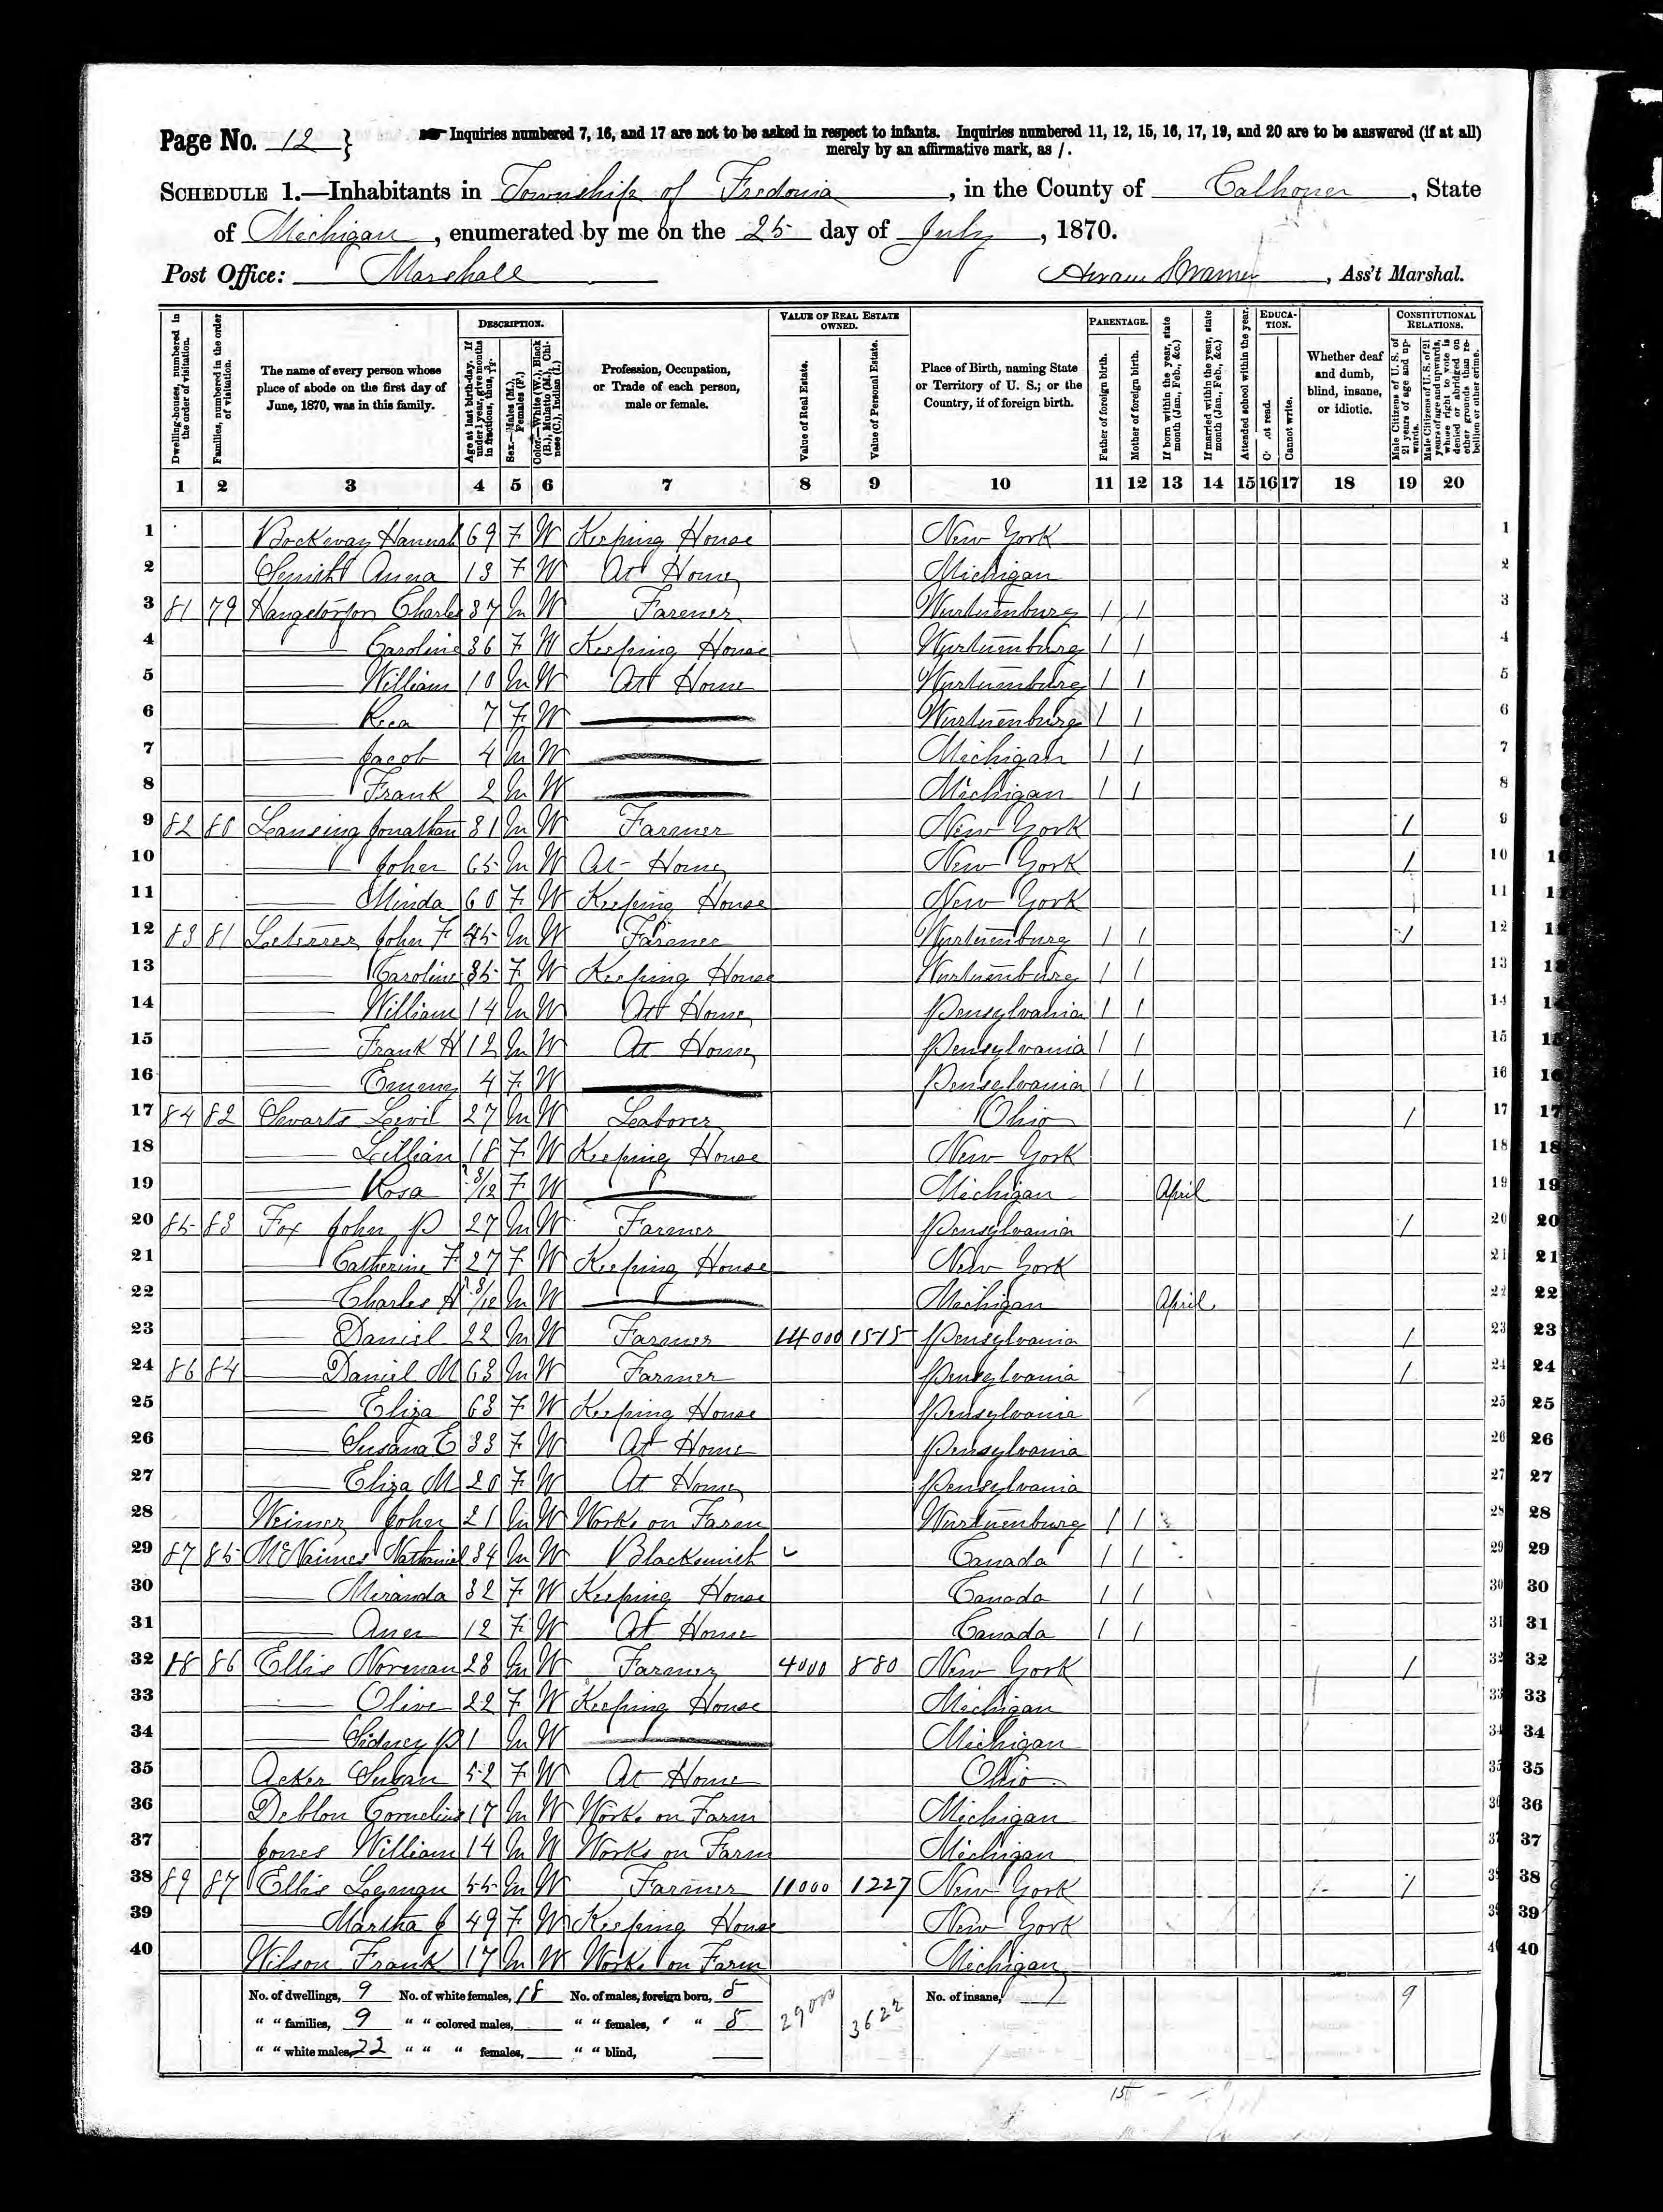 Page No. 12 }
Inquiries numbered 7, 16, and 17 are not to be asked in respect to infants. Inquiries numbered 11, 12, 15, 16, 17, 19, and 20 are to be answered (if at all)
merely by an affirmative mark, as /.
SCHEDULE 1.—Inhabitants in Township of Fredonia, in the County of Calhoun, State
of Michigan, enumerated by me on the 25 day of July, 1870.
Post Office: Marshall
, Ass't Marshal.
Dwelling-houses, numbered in the order of visitation.
Families, numbered in the order of visitation.
The name of every person whose place of abode on the first day of June, 1870, was in this family.
DESCRIPTION.
Age at last birth-day. If under 1 year, give months in fractions, thus, 3/12
Sex.—Males (M.), Females (F.)
Color.—White (W.), Black (B.), Mulatto (M.), Chinese (C.), Indian (I.)
Profession, Occupation, or Trade of each person, male or female.
VALUE OF REAL ESTATE OWNED.
Value of Real Estate.
Value of Personal Estate.
Place of Birth, naming State or Territory of U. S.; or the Country, if of foreign birth.
PARENTAGE.
Father of foreign birth.
Mother of foreign birth.
If born within the year, state month (Jan., Feb., &c.)
If married within the year, state month (Jan., Feb., &c.)
Attended school within the year.
EDUCATION.
C ot read.
Cannot write.
Whether deaf and dumb, blind, insane, or idiotic.
CONSTITUTIONAL RELATIONS.
Male Citizens of U. S. of 21 years of age and upwards.
Male Citizens of U. S. of 21 years of age and upwards, whose right to vote is denied or abridged on other grounds than rebellion or other crime.
1 2 3 4 5 6 7 8 9 10 11 12 13 14 15 16 17 18 19 20
1 Hannah 69 F W Keeping House New York 1
2 Smith Anna 13 F W At Home Michigan 2
3 81 79 Charles 37 M W Farmer Wurtemburg / / 3
4 Caroline 36 F W Keeping House Wurtemburg / / 4
5 William 10 M W At Home Wurtemburg / / 5
6 7 F W Wurtemburg / / 6
7 Jacob 4 M W Michigan / / 7
8 Frank 2 M W Michigan / / 8
9 82 80 Lansing Jonathan 31 M W Farmer New York / 9
10 John 65 M W At Home New York / 10
11 Minda 60 F W Keeping House New York 11
12 83 81 John F 45 M W Farmer Wurtemburg / / / 12
13 Caroline 35 F W Keeping House Wurtemburg / / 13
14 William 14 M W At Home Pensylvania / / 14
15 Frank H 12 M W At Home Pensylvania / / 15
16 4 F W Pensylvania / / 16
17 84 82 Swarts 27 M W Leaborer Ohio / 17
18 Lillian 18 F W Keeping House New York 18
19 Rosa 3/12 F W Michigan April 19
20 85 83 Fox John P 27 M W Farmer Pensylvania / 20
21 Catherine F 27 F W Keeping House New York 21
22 Charles H 3/12 M W Michigan April 22
23 Daniel 22 M W Farmer 14000 1515 Pensylvania / 23
24 86 84 Daniel M 63 M W Farmer Pensylvania / 24
25 Eliza 63 F W Keeping House Pensylvania 25
26 Susana E 33 F W At Home Pensylvania 26
27 Eliza M 20 F W At Home Pensylvania 27
28 Weimer John 21 M W Works on Farm Wurtemburg / / 28
29 87 85 McNaimes Nathaniel 34 M W Blacksmith Canada / / 29
30 Miranda 32 F W Keeping House Canada / / 30
31 12 F W At Home Canada / / 31
32 18 86 Ellis Norman 23 M W Farmer 4000 880 New York / 32
33 Olive 22 F W Keeping House Michigan 33
34 Sidney P 1 M W Michigan 34
35 Acker Susan 52 F W At Home Ohio 35
36 Deblon Cornelius 17 M W Works on Farm Michigan 36
37 Jones William 14 M W Works on Farm Michigan 37
38 89 87 Ellis Lyman 55 M W Farmer 11000 1227 New York / 38
39 Martha J 49 F W Keeping House New York 39
40 Wilson Frank 17 M W Works on Farm Michigan 40
No. of dwellings, 9 No. of white females, 18 No. of males, foreign born, 5 29000 3622 No. of insane, 9
" " families, 9 " " colored males, " " females, " " 8
" " white males, 22 " " " females, " " blind,